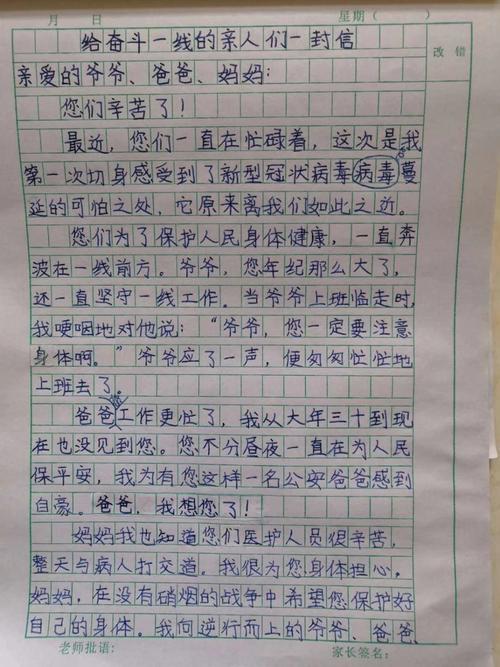 月 日 星期（ ）
改 错
给奋斗一线的亲人们一封信
亲爱的爷爷、爸爸、妈妈：
您们辛苦了！
最近，您们一直在忙碌着，这次是我
第一次切身感受到了新型冠状病毒病毒蔓
延的可怕之处，它原来离我们如此之近。
您们为了保护人民身体健康，一直奔
波在一线前方。爷爷，您年纪那么大了，
还一直坚守一线工作。当爷爷上班临走时，
我哽咽地对他说：“爷爷，您一定要注意
身体啊。”爷爷应了一声，便匆匆忙忙地
上班去了。
爸爸工作更忙了，我从大年三十到现
在也没见到您。您不分昼夜一直在为人民
保平安，我为有您这样一名公安爸爸感到
自豪。爸爸，我想您了！
妈妈我也知道您们医护人员很辛苦，
整天与病人打交道。我很为您身体担心。
妈妈，在没有硝烟的战争中希望您保护好
自己的身体。我向逆行而上的爷爷、爸爸、
老师批语： 家长签名：